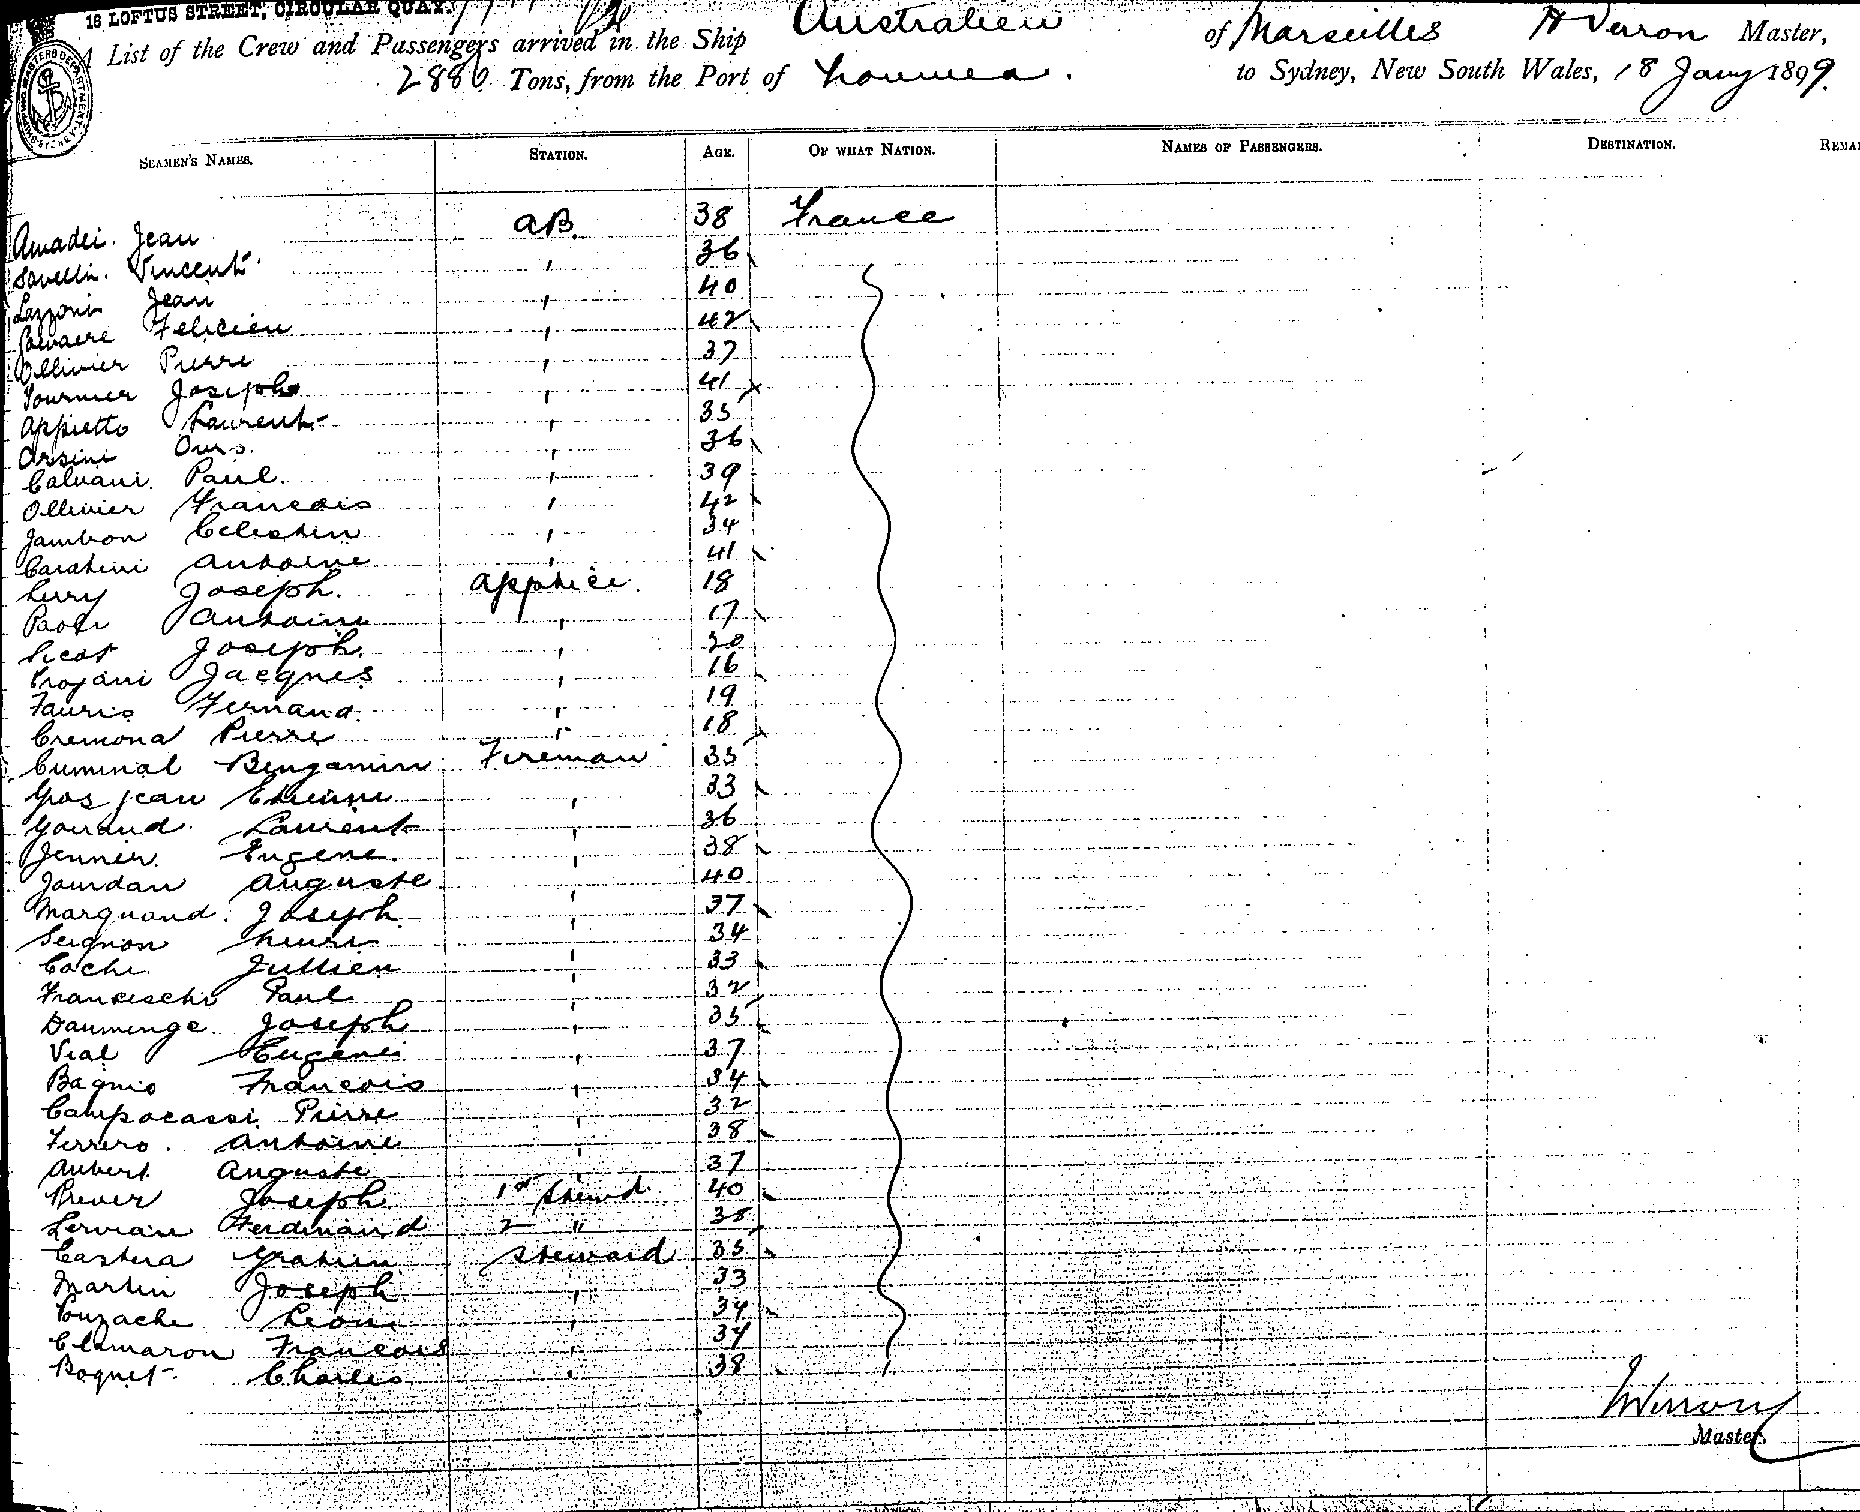 16 LOFTUS STREET, CIRCULAR QUAY.
A List of the Crew and Passengers arrived in the Ship Australien of Marseilles H Verron Master,
2880 Tons, from the Port of Noumea. to Sydney, New South Wales, 18 Jany 1899.
SEAMEN'S NAMES. STATION. AGE. OF WHAT NATION. NAMES OF PASSENGERS. DESTINATION. REMA
Amadei. Jean aB. 38 France
Savelli. Vincent 36
Lazzoni Jean 40
Felicien 42
Ollivier Pierre 37
Fournier Joseph 41
Appietto Laurent 35
Orsini Ours. 36
Calvani. Paul. 39
Ollivier Francois 42
Jambon Celestin 34
Antoine 41
Joseph. appntice 18
Paoli Antoine 17
Picot Joseph. 20
Trojani Jacques 16
Fauris Fernand. 19
Cremona Pierre 18
Cuminal Bengamin Fireman 35
Gros jean Etienne 33
Gouraud. Laurent 36
Jennier. Eugene. 38
Jourdan Auguste 40
Marquand. Joseph 37
Seignon Henri 34
Coche Jullien 33
Franceschi Paul 32
Daumenge Joseph 35
Vial Eugene 37
Bagnis Francois 34
Campocassi Pierre 32
Ferrero. Antoine 38
Aubert Auguste 37
Prever Joseph 1st Stewd 40
Ferdinand 2 " 38
Castera Gratien Steward 35
Martin Joseph 33
Touzache Leon 34
Clamaron Francois 34
Boquet Charles 38
HVerron
Master.